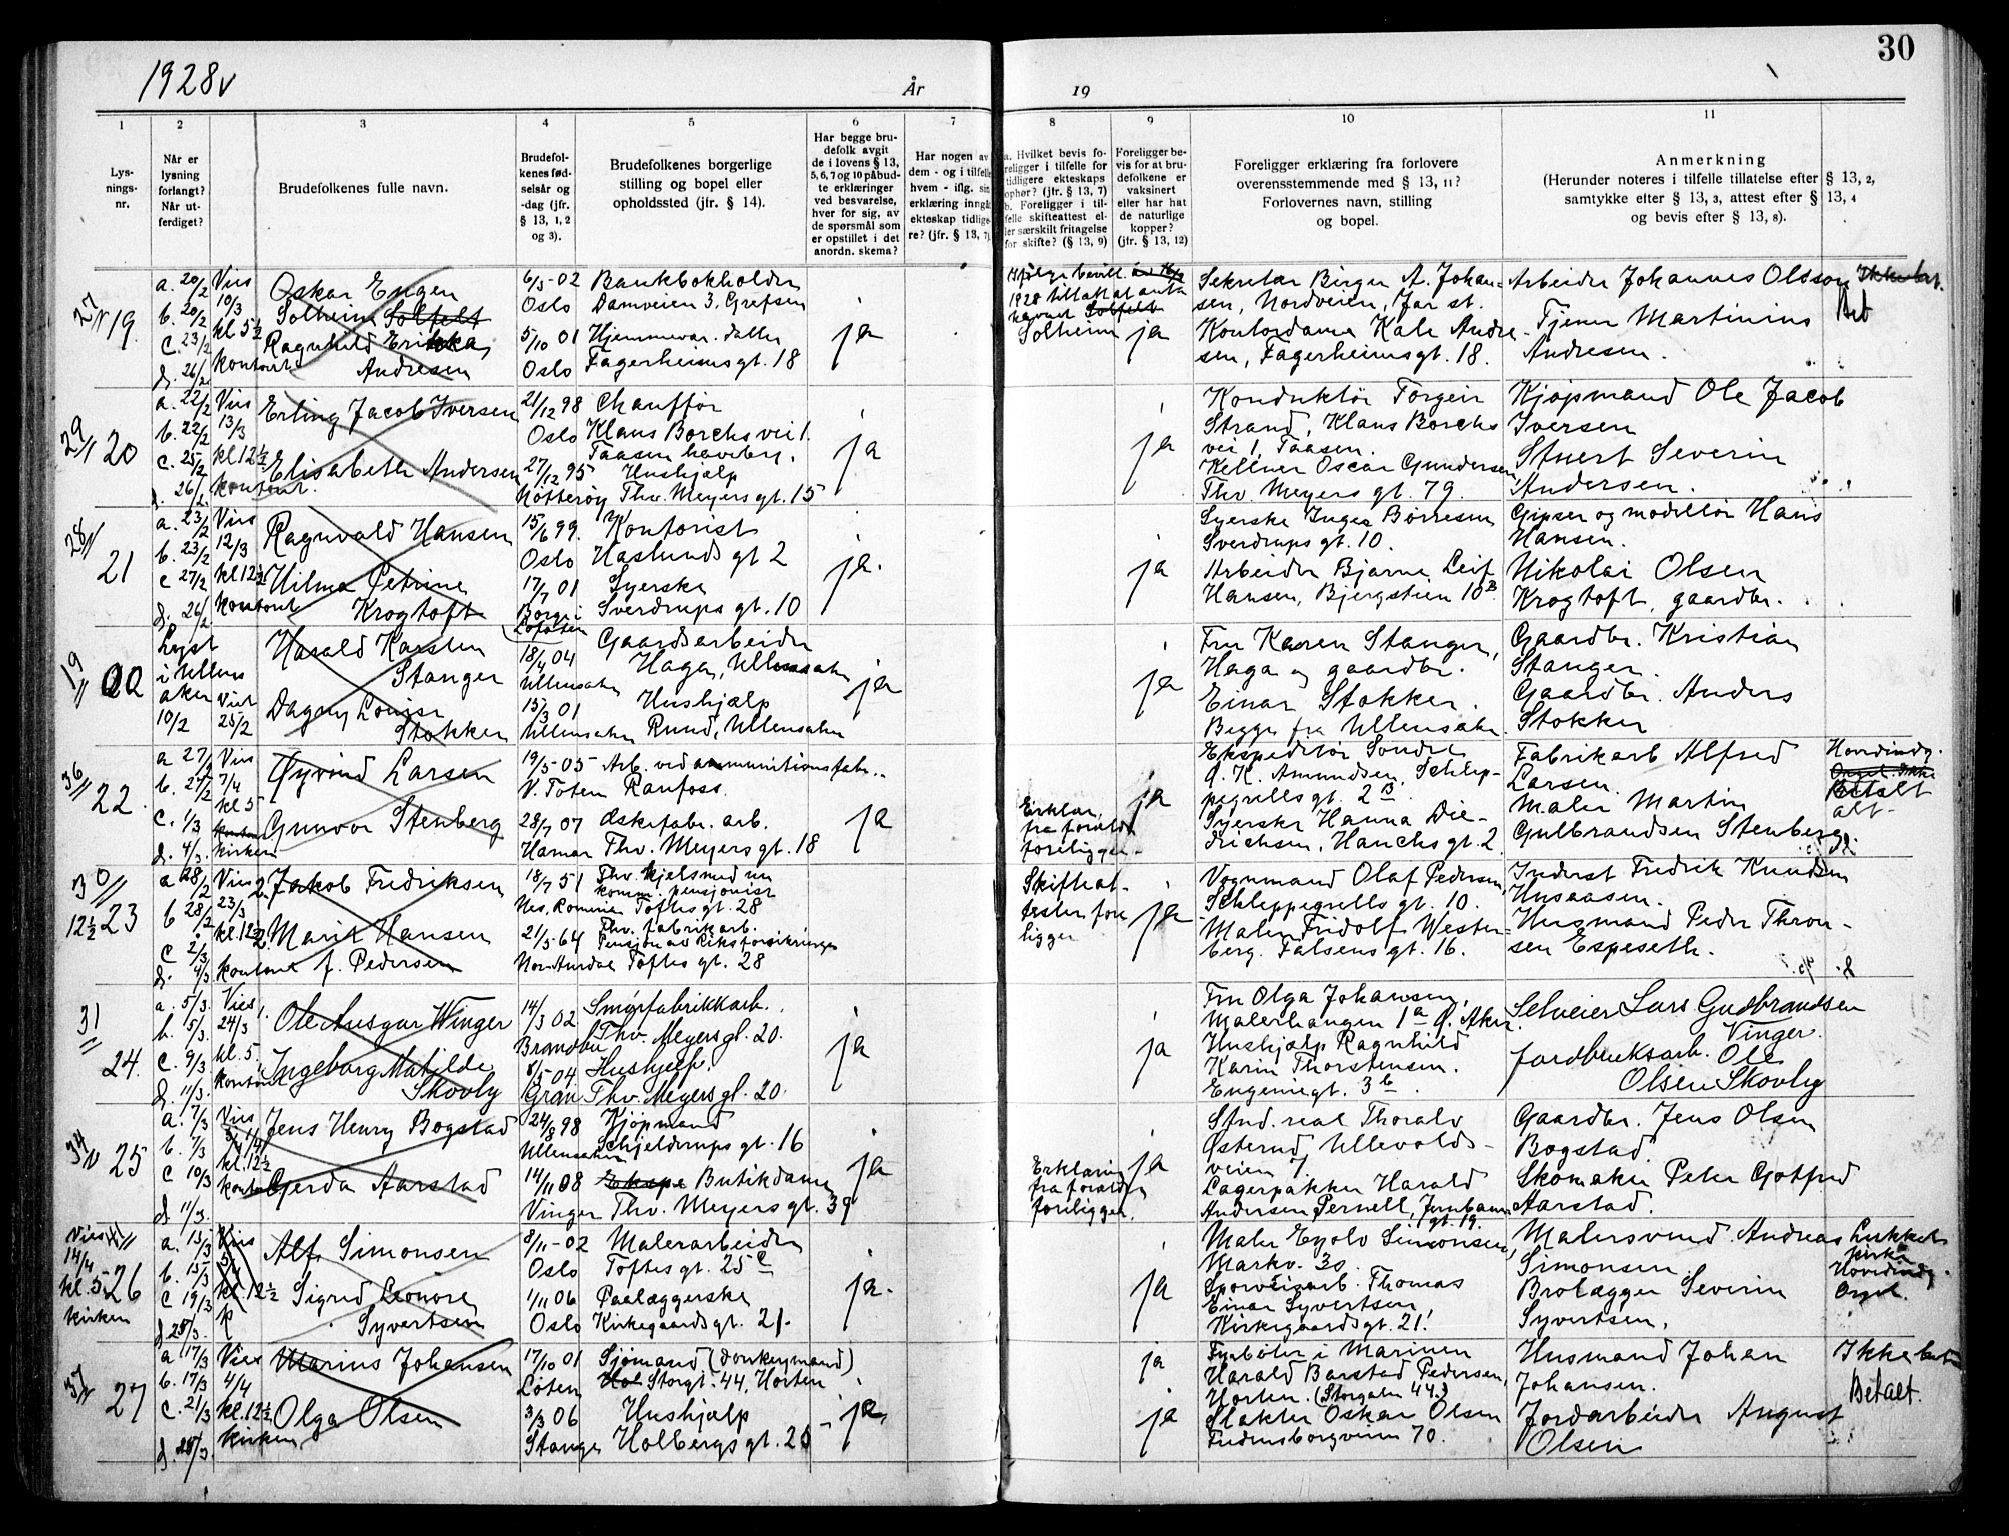 1928
År
19
30
1
2
3
4
5
6
7
8
9
10
11
Lys-
nings-
nr.
Når er
lysning
forlangt?
Når ut-
ferdiget?
Brudefolkenes fulle navn.
Brudefol-
kenes fød-
selsår og
-dag (jfr.
§ 13, 1, 2
og 3).
Brudefolkenes borgerlige
stilling og bopel eller
opholdssted (jfr. § 14).
Har begge bru-
defolk avgit
de i lovens § 13,
5, 6, 7 og 10 påbud-
te erklæringer
ved besvarelse,
hver for sig, av
de spørsmål som
er opstillet i det
anordn. skema?
Har nogen av
dem - og i tilfelle
hvem - iflg. sin
erklæring inngå
ekteskap tidlige-
re? (jfr. § 13, 7)
a. Hvilket bevis fo-
religger i tilfelle for
tidligere ekteskaps
ophør? (jfr. § 13, 7)
b. Foreligger i til-
felle skifteattest el-
ler særskilt fritagelse
for skifte? (§ 13, 9)
Foreligger be-
vis for at bru-
defolkene er
vaksinert
eller har hat
de naturlige
kopper?
(jfr. § 13, 12)
Foreligger erklæring fra forlovere
overensstemmende med § 13, 11?
Forlovernes navn, stilling
og bopel.
Anmerkning
(Herunder noteres i tilfelle tillatelse efter § 13, 2,
samtykke efter § 13, 3, attest efter § 13, 4
og bevis efter § 13, 8).
27
19.
a. 20/2
b. 20/2
c. 23/2
d. 26/2
Vies
10/3
kl 5½
kontoret
Oskar Eugen
Solheim Solfelt
Ragnhild Erikka
Andresen
6/5-02
Oslo
5/10 01
Oslo
Bankbokholder
Damveien 3, Grefsen
Hjemmevær. datter
Fagerheimsgt. 18
ja
Solheim
ja
Sekretær Birger A. Johan-
sen, Nordveien, Jar st.
Kontordame Kate Andre-
sen, Fagerheimsgt. 18.
Arbeider Johannes Olsson
Tjener Martinius
Andresen.
29
20
a. 22/2
b. 22/2
c. 25/2
d. 26/2
Vies
13/3
kl 12½
kontoret.
Erling Jacob Iversen
Elisabeth Andersen
21/12 98
Oslo
27/12 95
Nøtterøy
Chauffør
Klaus Borchs vei 1.
Taasen haveby.
Hushjælp
Thv. Meyersgt. 15
ja
ja
Konduktør Torgeir
Strand, Klaus Borchs
vei 1, Taasen.
Kellner Oscar Gundersen,
Thv. Meyers gt. 79.
Kjøpmand Ole Jacob
Iversen
Stuert Severin
Andersen.
28
21
a. 23/2
b. 23/2
c 27/2
d. 26/2
Vies
12/3
kl 12½
kontoret
Ragnvald Hansen
Hilma Petrine
Krogtoft
15/6 99.
Oslo
17/7 01
Borge i
Lofoten
Kontorist
Haslunds gt 2
Syerske
Sverdrups gt. 10
ja.
ja
Syerske Inger Børresen
Sverdrups gt. 10.
Arbeider Bjarne Leif
Hansen, Bjergstien 10 B.
Gipser og modellør Hans
Hansen.
Nikolai Olsen
Krogtoft, gaardbr.
19
00
Lyst
i Ullens
aker
10/2
Viet
25/2
Harald Karsten
Stanger
Dagny Louise
Stokker
18/4 04
Ullensaker
15/3 01
Ullensaker
Gaardsarbeider
Haga, Ullensaker
Hushjælp
Rund, Ullensaker
ja
ja
Fru Karen Stanger,
Haga og gaardbr.
Einar Stokker.
Begge fra Ullensaker
Gaardbr. Kristian
Stanger
Gaardbr. Anders
Stokker
36
22.
a 27/2
b. 27/2
c. 1/3
d. 4/3.
Vies
7/4
kl 5
kontoret
kirken
Øyvind Larsen
Gunvor Stenberg
19/5-05
V. Toten
28/7 07
Hamar
Arb. ved ammunitionsfabr..
Raufoss.
Æskefabr. arb.
Thv. Meyersgt. 18
ja
Erklær.
fra forældr.
foreligger.
ja
Ekspeditør Sondre
O. K. Amundsen, Schlep-
pegrellsgt. 2 B.
Syerske Hanna Die-
drichsen, Hauchsgt. 2
Fabrikarb Alfred
Larsen.
Maler Martin
Gulbrandsen Stenberg.
Hovedindg.
Orgel. Ikke
Betalt
alt
30
12½
23
a 28/2
b 28/2
c 2/3
d. 4/3
Vies
23/3
kl. 12½
kontoret
2. Jakob Fredriksen
2. Marie Hansen
f. Pedersen
18/7 51
Nes, Romerike
21/5-64
Nor. Aurdal
Thv. hjelpsmed nu
komm. pensjonist
Toftes gt. 28
Thv. fabrikarb.
Pensjon av Riksforsikringen
Toftes gt. 28
Skifteat-
tester fore
ligger
ja
Vognmand Olaf Pedersen,
Schleppegrells gt. 10.
Maler Fridolf Wester-
berg. Falsens gt. 16.
Inderst Fredrik Knudsen
Husaasen.
Husmand Peder Thron-
sen Espeseth.
31
24.
a. 5/3.
b. 5/3.
c. 9/3
d. 11/3.
Vies
24/3
kl. 5.
kontoret
Ole Ansgar Winger
Ingeborg Matilde
Skovly
14/3 02
Brandbu
8/5-04
Gran
Smørfabrikkarb.
Thv. Meyersgt. 20.
Hushjelp.
Thv. Meyersgt. 20.
ja
ja
Fru Olga Johansen,
Malerhaugen 1 a Ø. Aker.
Hushjælp Ragnhild
Karin Thorstensen.
Eugeniegt. 3 b
Selveier Lars Gudbrandsen
Vinger.
Jordbruksarb. Ole
Olsen Skovly
34
25
a. 7/3
b. 7/3
c 10/3
d. 11/3.
Vies
kl. 12½
Jens Henry Bogstad
Gerda Aarstad
24/8 98
Ullensaker
14/11 08
Vinger
Kjøpmand
Schjeldrups gt. 16
Butikdame
Thv. Meyers gt. 39
ja
Erklæring
fra foreldr
foreligger.
ja
Stud. real Thoralv
Østerud, Ullevolds-
veien 7
Lagerpakker Harald
Andersen Pernell, Jernbane
gt. 19.
Gaardbr. Jens Olsen
Bogstad
Skomaker Peter Gotfred
Aarstad.
Vies
14/4
kl. 5
kirken
26
a. 15/3
b. 15/3
c 19/3
d 28/3.
Vies
kl. 12½
k
Alf Simonsen
Sigrid Leonore
Syvertsen
8/11-02
Oslo
1/11 06
Oslo
Malerarbeider
Toftes gt. 25 c
Paalæggerske
Kirkegaardsgt. 21.
ja.
ja
Maler Eyolv Simonsen,
Markv. 30.
Sporveisarb. Thomas
Einar Syvertsen,
Kirkegaardsgt. 21.
Malersvend Andreas
Simonsen
Brolægger Severin
Syvertsen.
Lukket
kirke
Hovedindg.
Orgel.
37
27
a 17/3
b. 17/3
c. 21/3
d. 28/3.
Vies
4/4
kl. 12½
kirken
Marius Johansen
Olga Olsen
17/10 01
Løten
3/3 06
Stange
Sjømand (donkeymand)
Storgt. 44, Horten
Hushjælp
Holbergs gt. 25
ja
ja
ja
Fyrbøter i Marinen
Harald Barstad Pedersen,
Horten. (Storgaten 44.)
Slakter Oskar Olsen
Fredensborgveien 70.
Husmand Johan
Johansen.
Jordarbeider August
Olsen
Ikke bet
Betalt